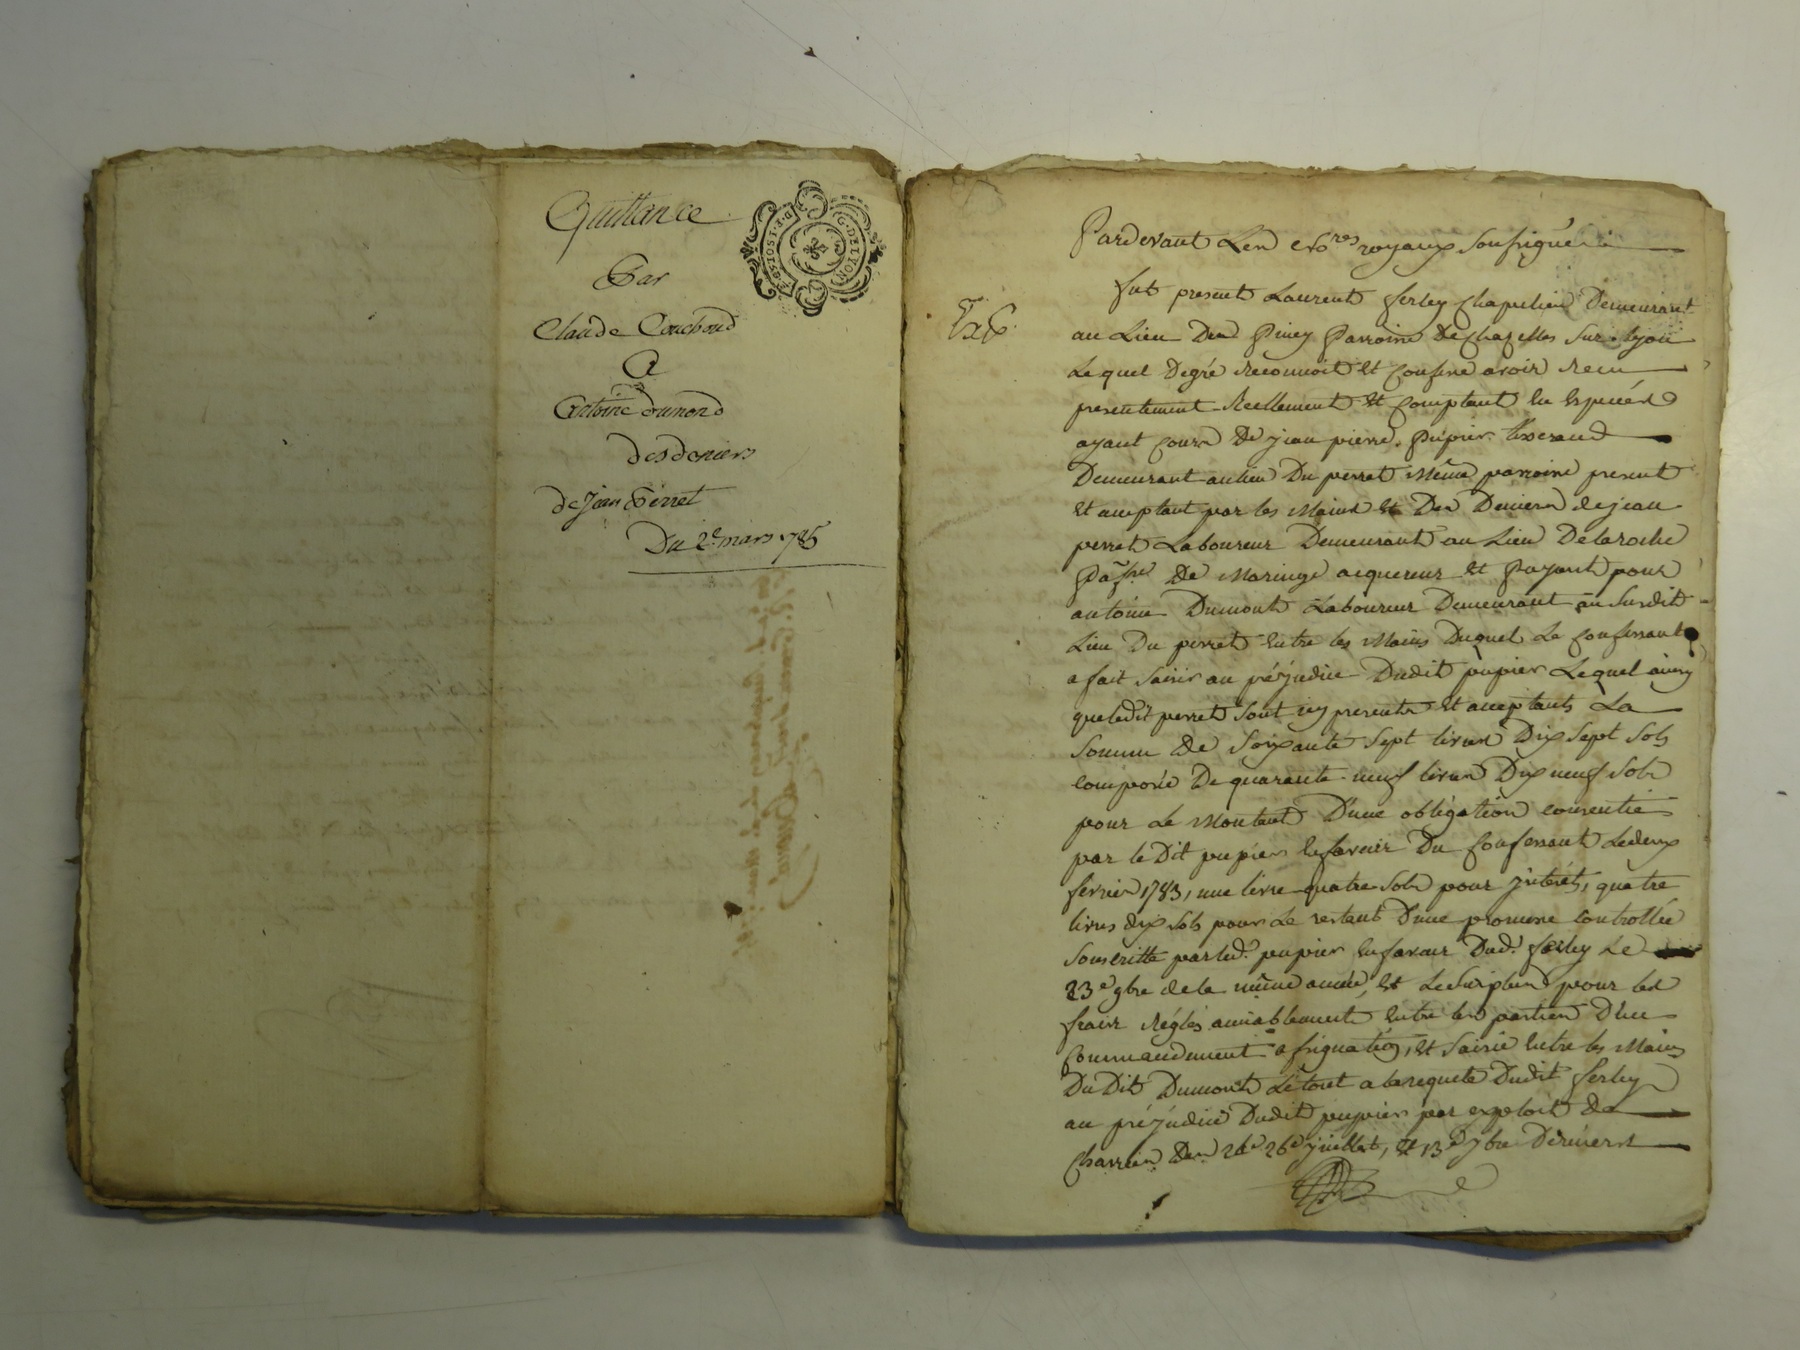 Quittance
Par
Claude Couchoud
A
Antoine dumond
des deniers
de Jean Perret
Du 2e mars 1785
G. DE LYON
Pardevant Les no.res royaux soussignés
fut present Laurent ferley chapelier Demeurant
au Lieu Du Piney Parroisse De chazelles sur Lyon
Lequel Degré reconnoit et confesse avoir recu
presentement reellement et comptant en especes
ayant cours de jean pierre pupier tisserand
Demeurant au lieu Du perret même parroisse present
et acceptant par les mains et Des Deniers de jean
perret Laboureur Demeurant au Lieu De la roche
De Maringe acquereur et Payant pour
antoine Dumont Laboureur Demeurant au susdit
Lieu Du perret entre les mains Duquel Le confessant
a fait saisir au préjudice Dudit pupier Lequel ainsy
que ledit perret sont icy presents et acceptants La
somme de soixante sept livres Dix sept sols
composée De quarante neuf livres Dix neuf sols
pour Le Montant D'une obligation consentie
par le Dit pupier en faveur Du confessant Le deux
fevrier 1783, une livre quatre sols pour jnterets, quatre
livres dix sols pour Le restant D'une promesse controllée
souscritte par led. pupier en faveur Dud. ferley Le
23e 9bre de la même année, et Le surplus pour les
frais réglés amiablement entre les parties D'un
commandement assignation, et saisie entre les mains
Du Dit Dumont Le tout a la requete Dudit ferley
au préjudice Dudit pupier par exploit de
Des 26e juillet, et 13e 7bre Derniers